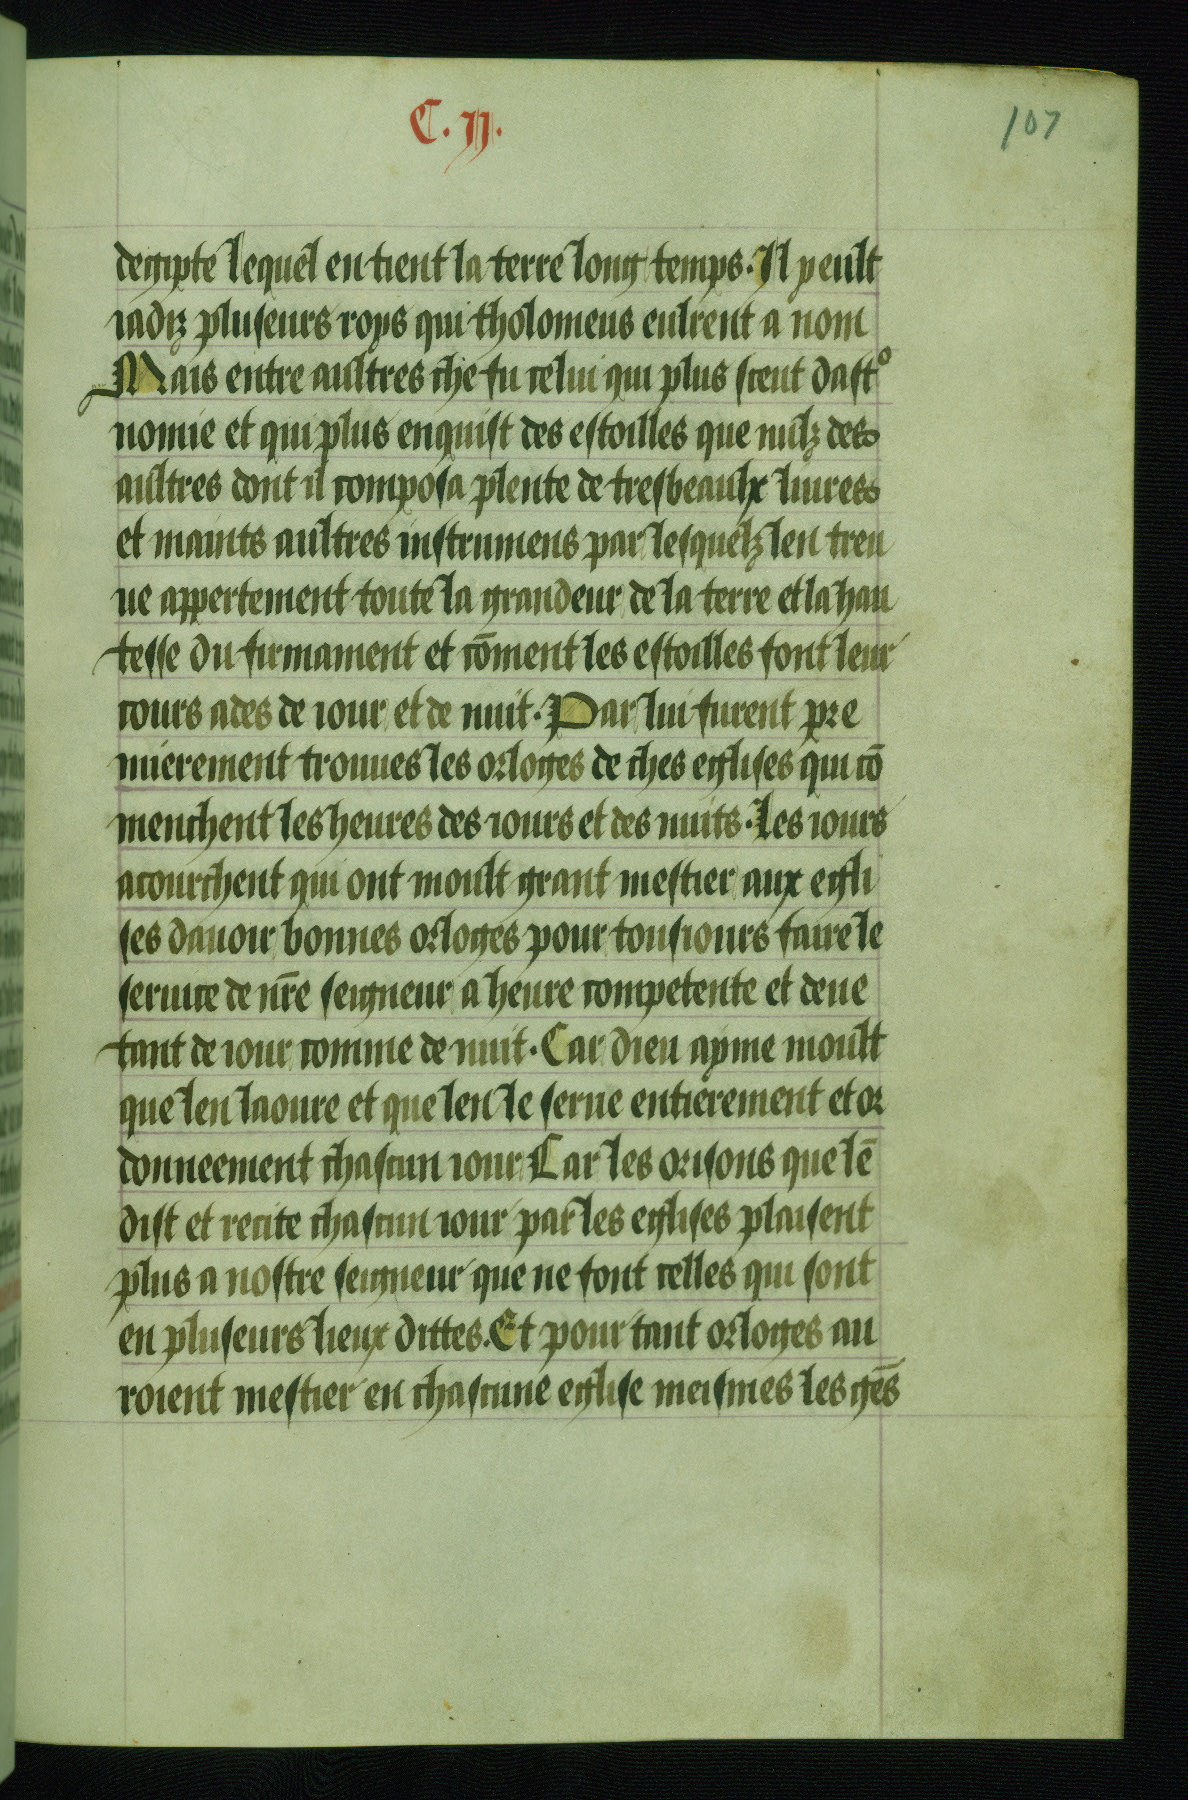 C. ij.
107
degipte lequel en tient la terre long temps. Il y eult
iadiz pluseurs roys qui tholomeus eulrent a nom
Mais entre aultres che fu celui qui plus sceut dastº
nomie et qui plus enquist des estoilles que nulz des
aultres dont il composa plente de tresbeaulx liures
et maints aultres instrumens par lesquelz len treu
ue appertement toute la grandeur de la terre et la hau
tesse du firmament et cōment les estoilles font leur
cours ades de iour et de nuit. Par lui furent pre
mierement trouues les orloges de ches eglises qui cō
menchent les heures des iours et des nuits. Les iours
acourchent qui ont moult grant mestier aux egli
ses dauoir bonnes orloges pour tousiours faire le
seruice de nr̄e seigneur a heure competente et deue
tant de iour comme de nuit. Car dieu ayme moult
que len laoure et que len le serue entierement et or
donneement chascun iour Car les orisons que lē
dist et recite chascun iour par les eglises plaisent
plus a nostre seigneur que ne font celles qui sont
en pluseurs lieux dittes. Et pour tant orloges au
roient mestier en chascune eglise meismes les gēs